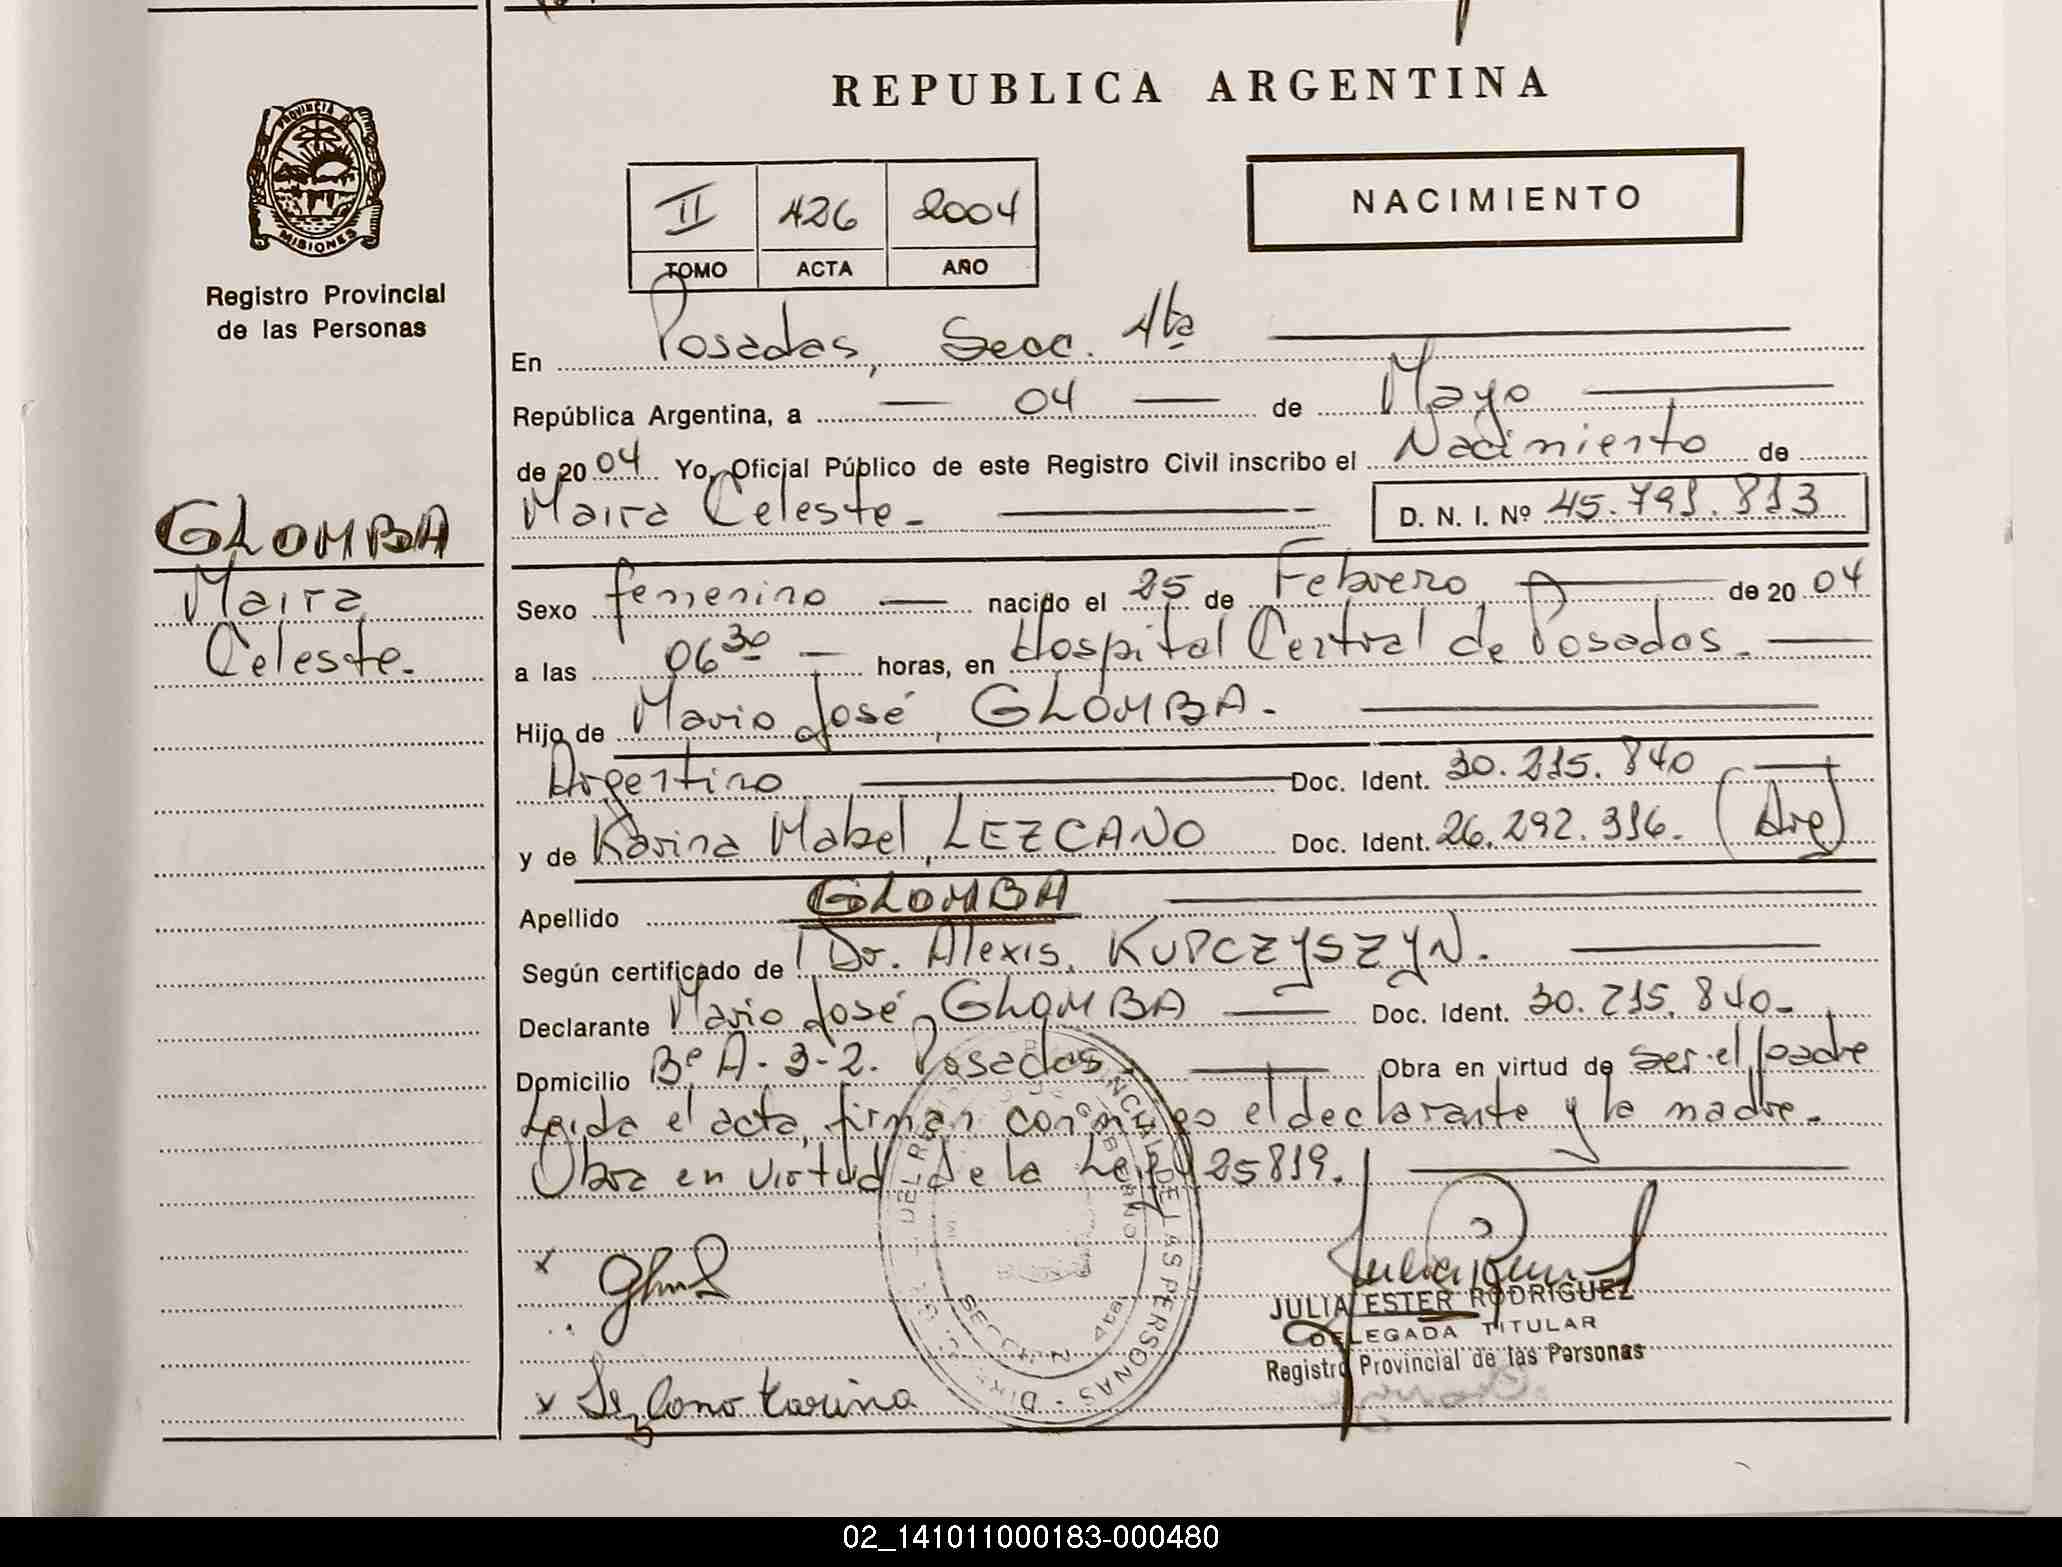 REPUBLICA ARGENTINA
PROVINCIA DE
MISIONES
Registro Provincial
de las Personas
II 426 2004
TOMO ACTA AÑO
NACIMIENTO
En Posadas, Secc. 4ta
República Argentina, a 04 de Mayo
de 2004 Yo, Oficial Público de este Registro Civil inscribo el Nacimiento de
Maira Celeste.- D. N. I. Nº 45.791.813
GLOMBA
Maira
Celeste.
Sexo femenino nacido el 25 de Febrero de 2004
a las 06 30 horas, en Hospital Central de Posadas.
Hijo de Mario José, GLOMBA.-
Argentino Doc. Ident. 30.215.840
y de Karina Mabel, LEZCANO Doc. Ident. 26.292.316. (Arg)
Apellido GLOMBA
Según certificado de Dr. Alexis, KUPCZYSZYN.
Declarante Mario José, GLOMBA Doc. Ident. 30.215.840.-
Domicilio Bº A-3-2. Posadas Obra en virtud de ser el padre
Leida el acta, firman conmigo el declarante y la madre.-
Obra en virtud de la Ley 25819.
x
x Lezcano Karina
JULIA ESTER RODRIGUEZ
DELEGADA TITULAR
Registro Provincial de las Personas
02_141011000183-000480